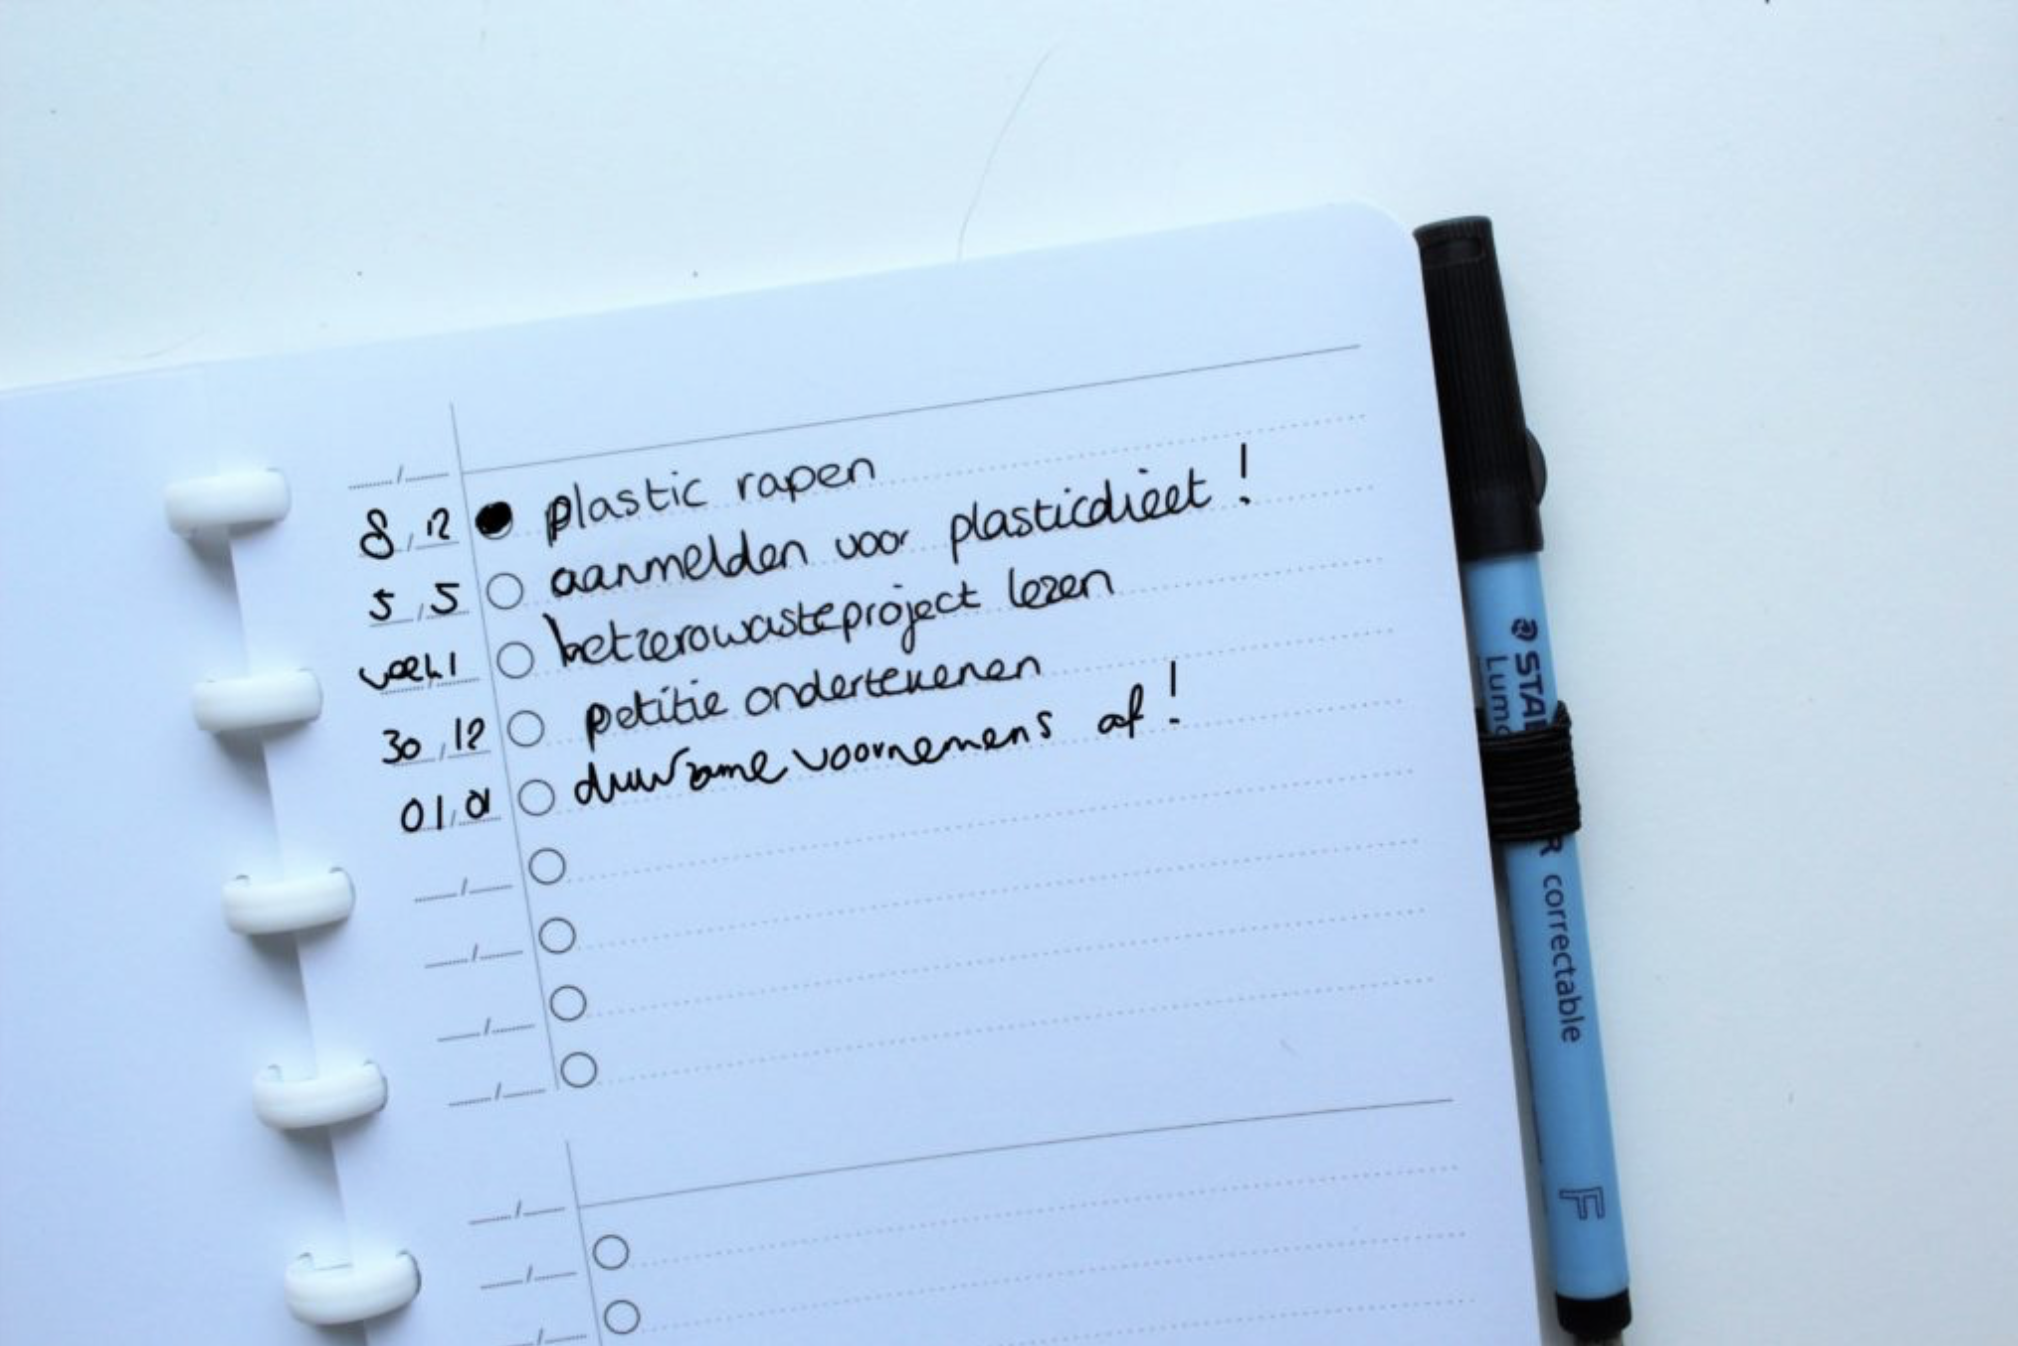 8/12 plastic rapen
5/5 aanmelden voor plasticdieet!
week 1 hetzerowasteproject lezen
30/12 petitie ondertekenen
01/01 duurzame voornemens af!
STAE
Lumo
R correctable
F